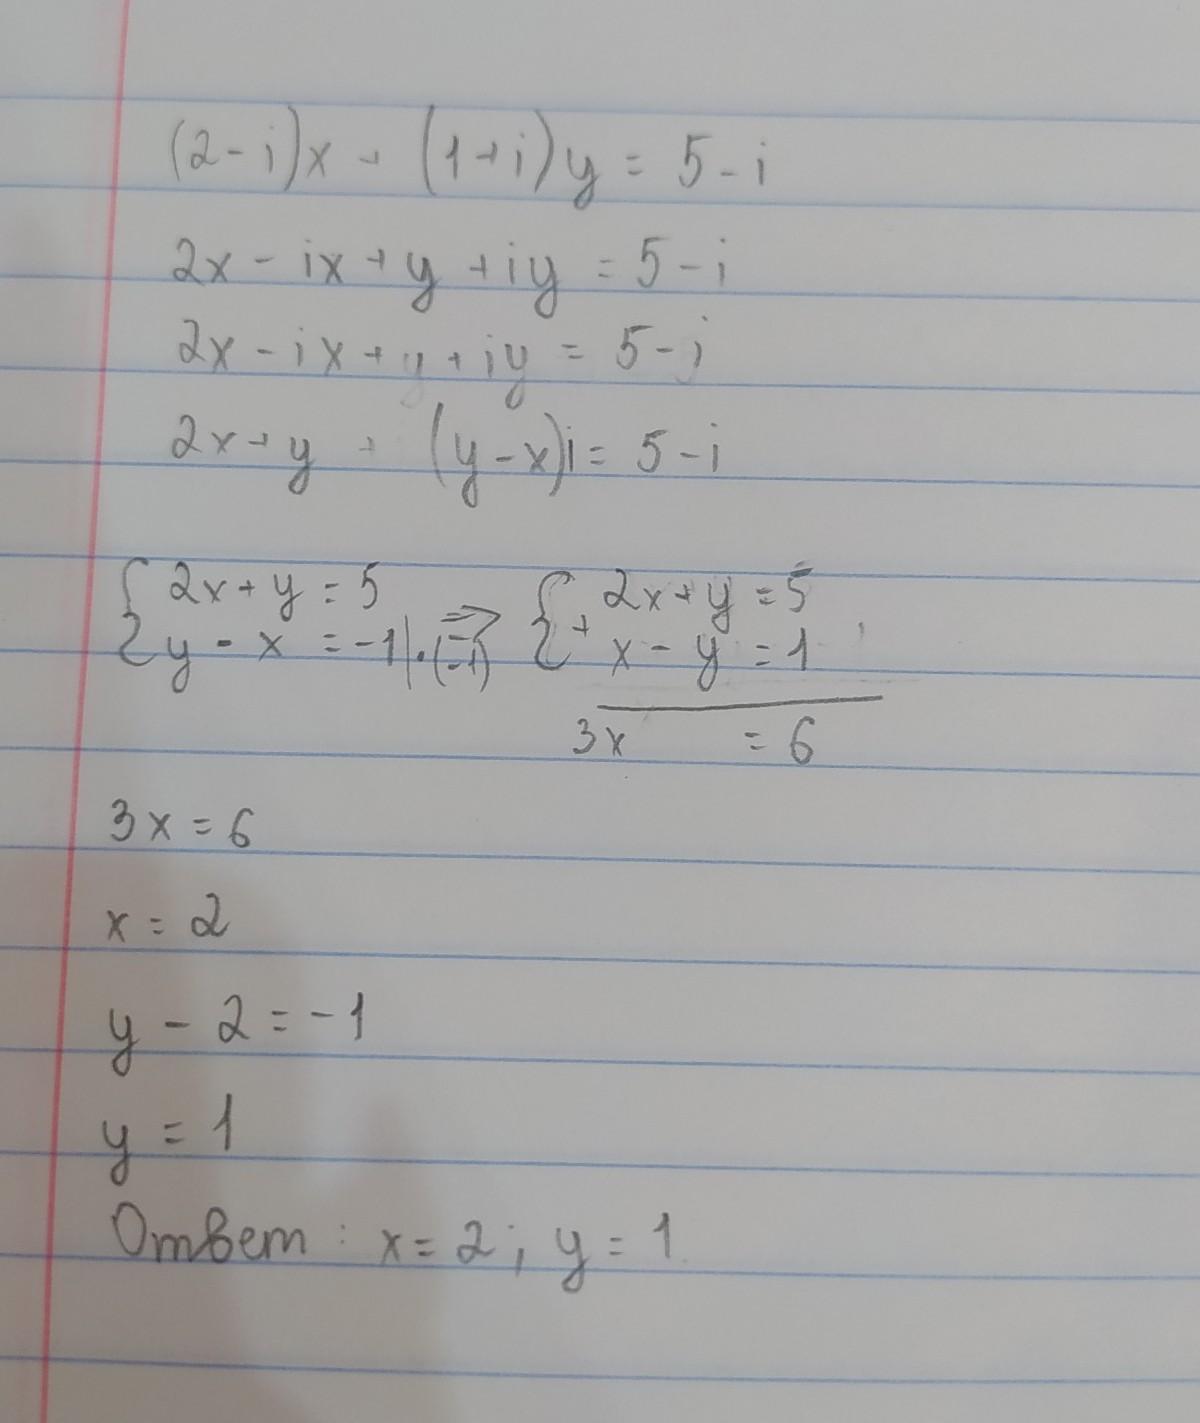 (2-i)x + (1+i)y = 5-i
2x - ix + y + iy = 5-i
2x - ix + y + iy = 5-i
2x + y + (y-x)i = 5-i
{ 2x + y = 5 { 2x + y = 5
y - x = -1 | · (-1) ⇒ + x - y = 1
3x = 6
3x = 6
x = 2
y - 2 = -1
y = 1
Ответ: x = 2; y = 1.